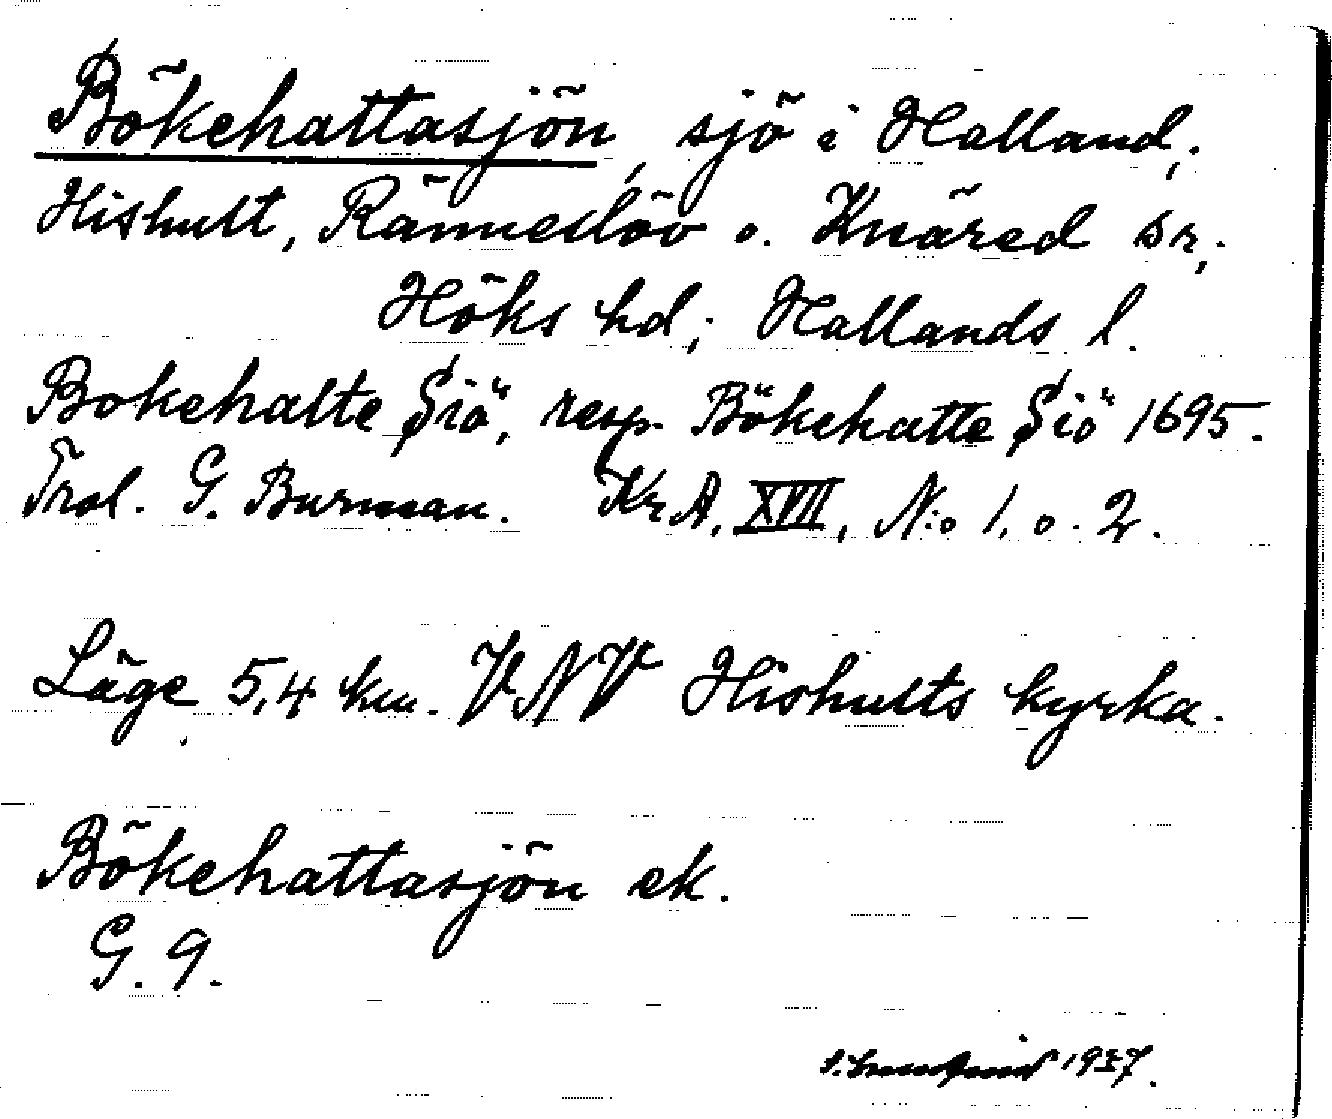 Bökehattasjön, sjö i Halland;
Hishult, Ränneslöv o. Knäred sr;
Höks hd; Hallands l.
Bokehalte Siö, resp. Bökehatte Siö 1695.
Trol. G. Burman. KrA. XVII, N:o 1, o. 2.
Läge 5,4 km. VNV Hishults kyrka.
Bökehattasjön ek.
G. 9.
1937.